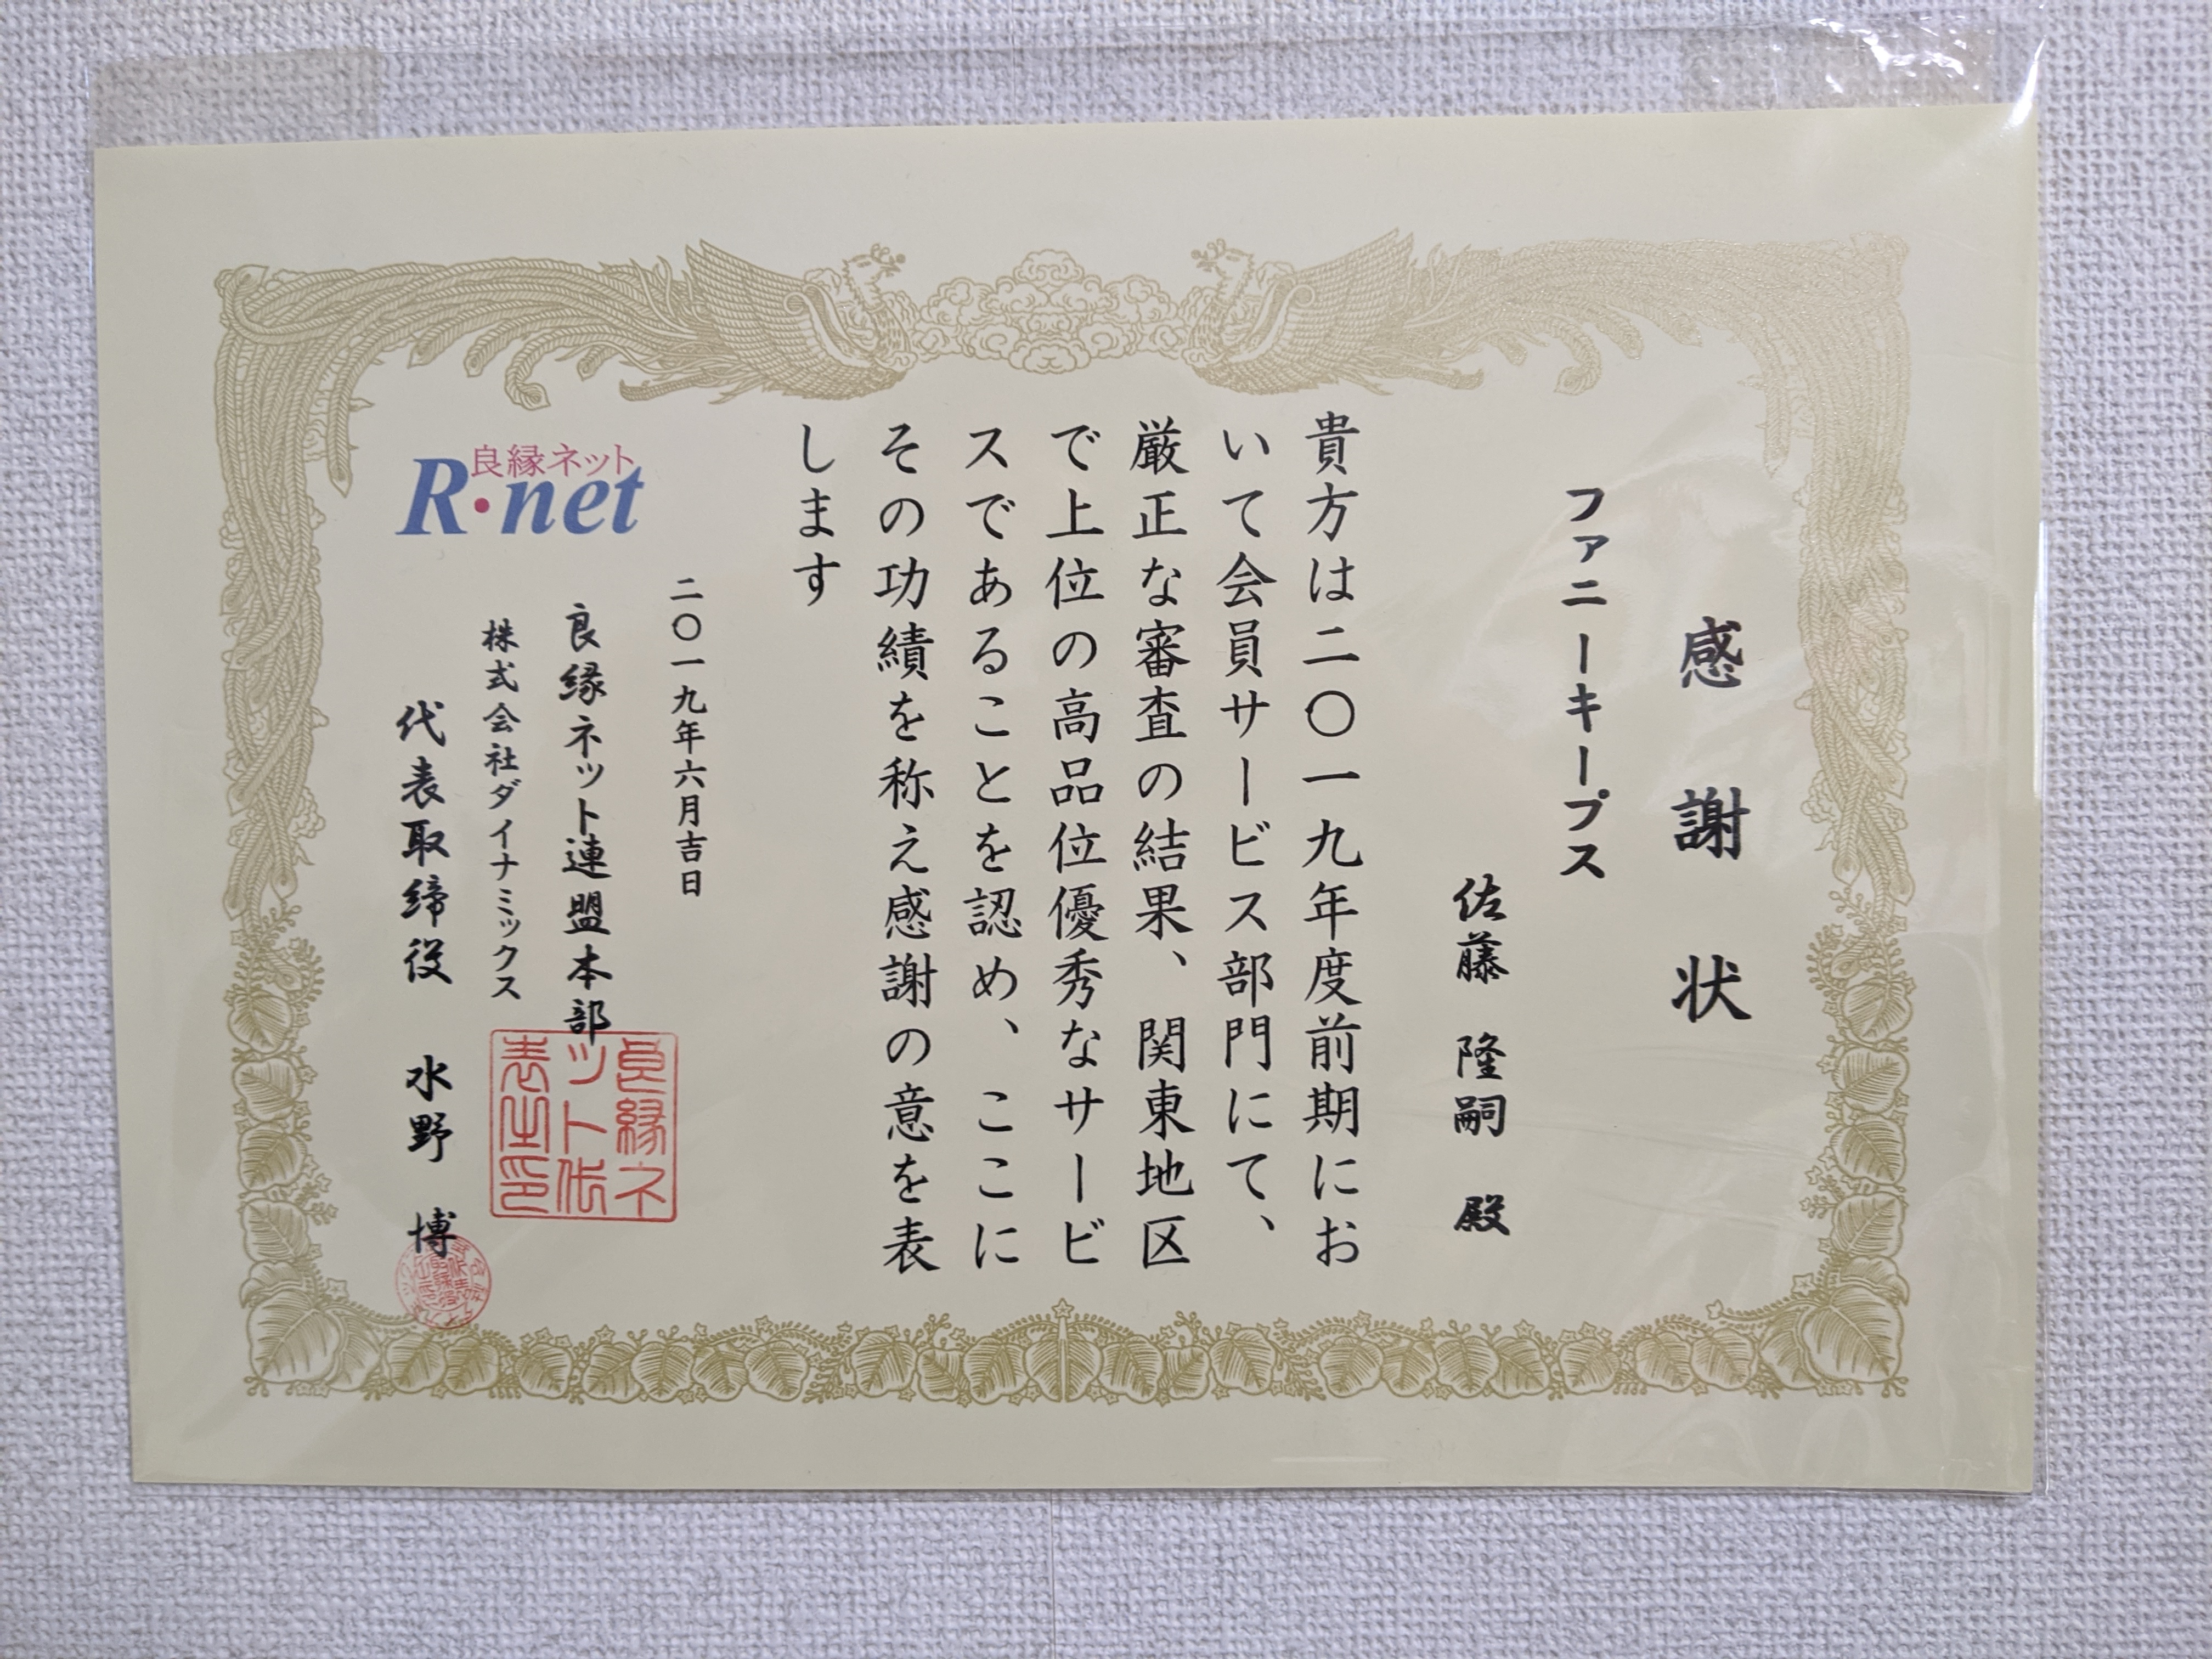 感謝状
ファニーキープス
佐藤 隆嗣 殿
貴方は二〇一九年度前期にお
いて会員サービス部門にて、
厳正な審査の結果、関東地区
で上位の高品位優秀なサービ
スであることを認め、ここに
その功績を称え感謝の意を表
します
二〇一九年六月吉日
良縁ネット連盟本部
株式会社ダイナミックス
代表取締役 水野 博
良縁ネット
R・net
良縁ネ
ット代
表之印